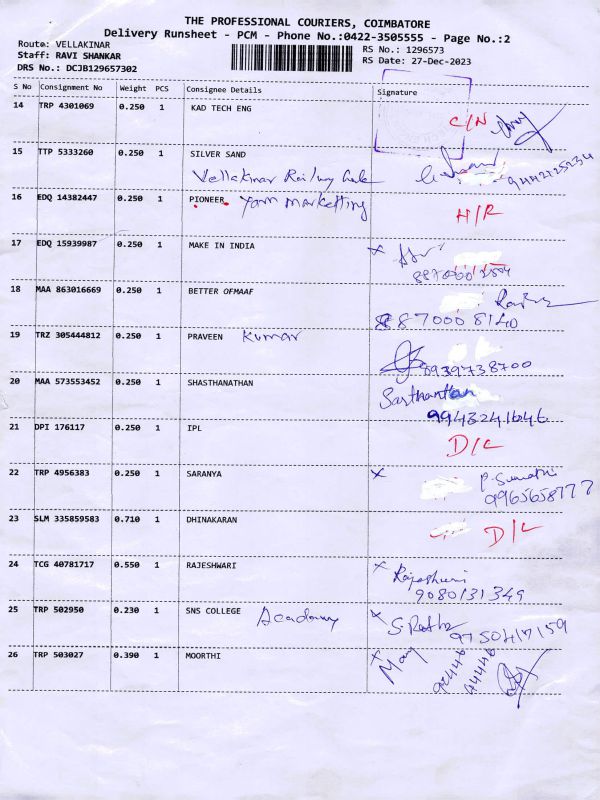 THE PROFESSIONAL COURIERS, COIMBATORE
Delivery Runsheet - PCM - Phone No.:0422-3505555 - Page No.:2
Route: VELLAKINAR
RS No.: 1296573
Staff: RAVI SHANKAR
RS Date: 27-Dec-2023
DRS No.: DCJB129657302
S No Consignment No Weight PCS Consignee Details Signature
14 TRP 4301069 0.250 1 KAD TECH ENG
C/N
15 TTP 5333260 0.250 1 SILVER SAND
Vellakinar Railway Gate 9442125234
16 EDQ 14382447 0.250 1 PIONEER Yarn marketting
H/R
17 EDQ 15939987 0.250 1 MAKE IN INDIA
18 MAA 863016669 0.250 1 BETTER OFMAAF
8870008140
19 TRZ 305444812 0.250 1 PRAVEEN Kumar
8939738700
20 MAA 573553452 0.250 1 SHASTHANATHAN
Sasthanathan
9943241646
21 DPI 176117 0.250 1 IPL
D/L
22 TRP 4956383 0.250 1 SARANYA
P. Sumathi
9965658777
23 SLM 335859583 0.710 1 DHINAKARAN
D/L
24 TCG 40781717 0.550 1 RAJESHWARI
Rajeshwari
9080131349
25 TRP 502950 0.230 1 SNS COLLEGE Academy
26 TRP 503027 0.390 1 MOORTHI